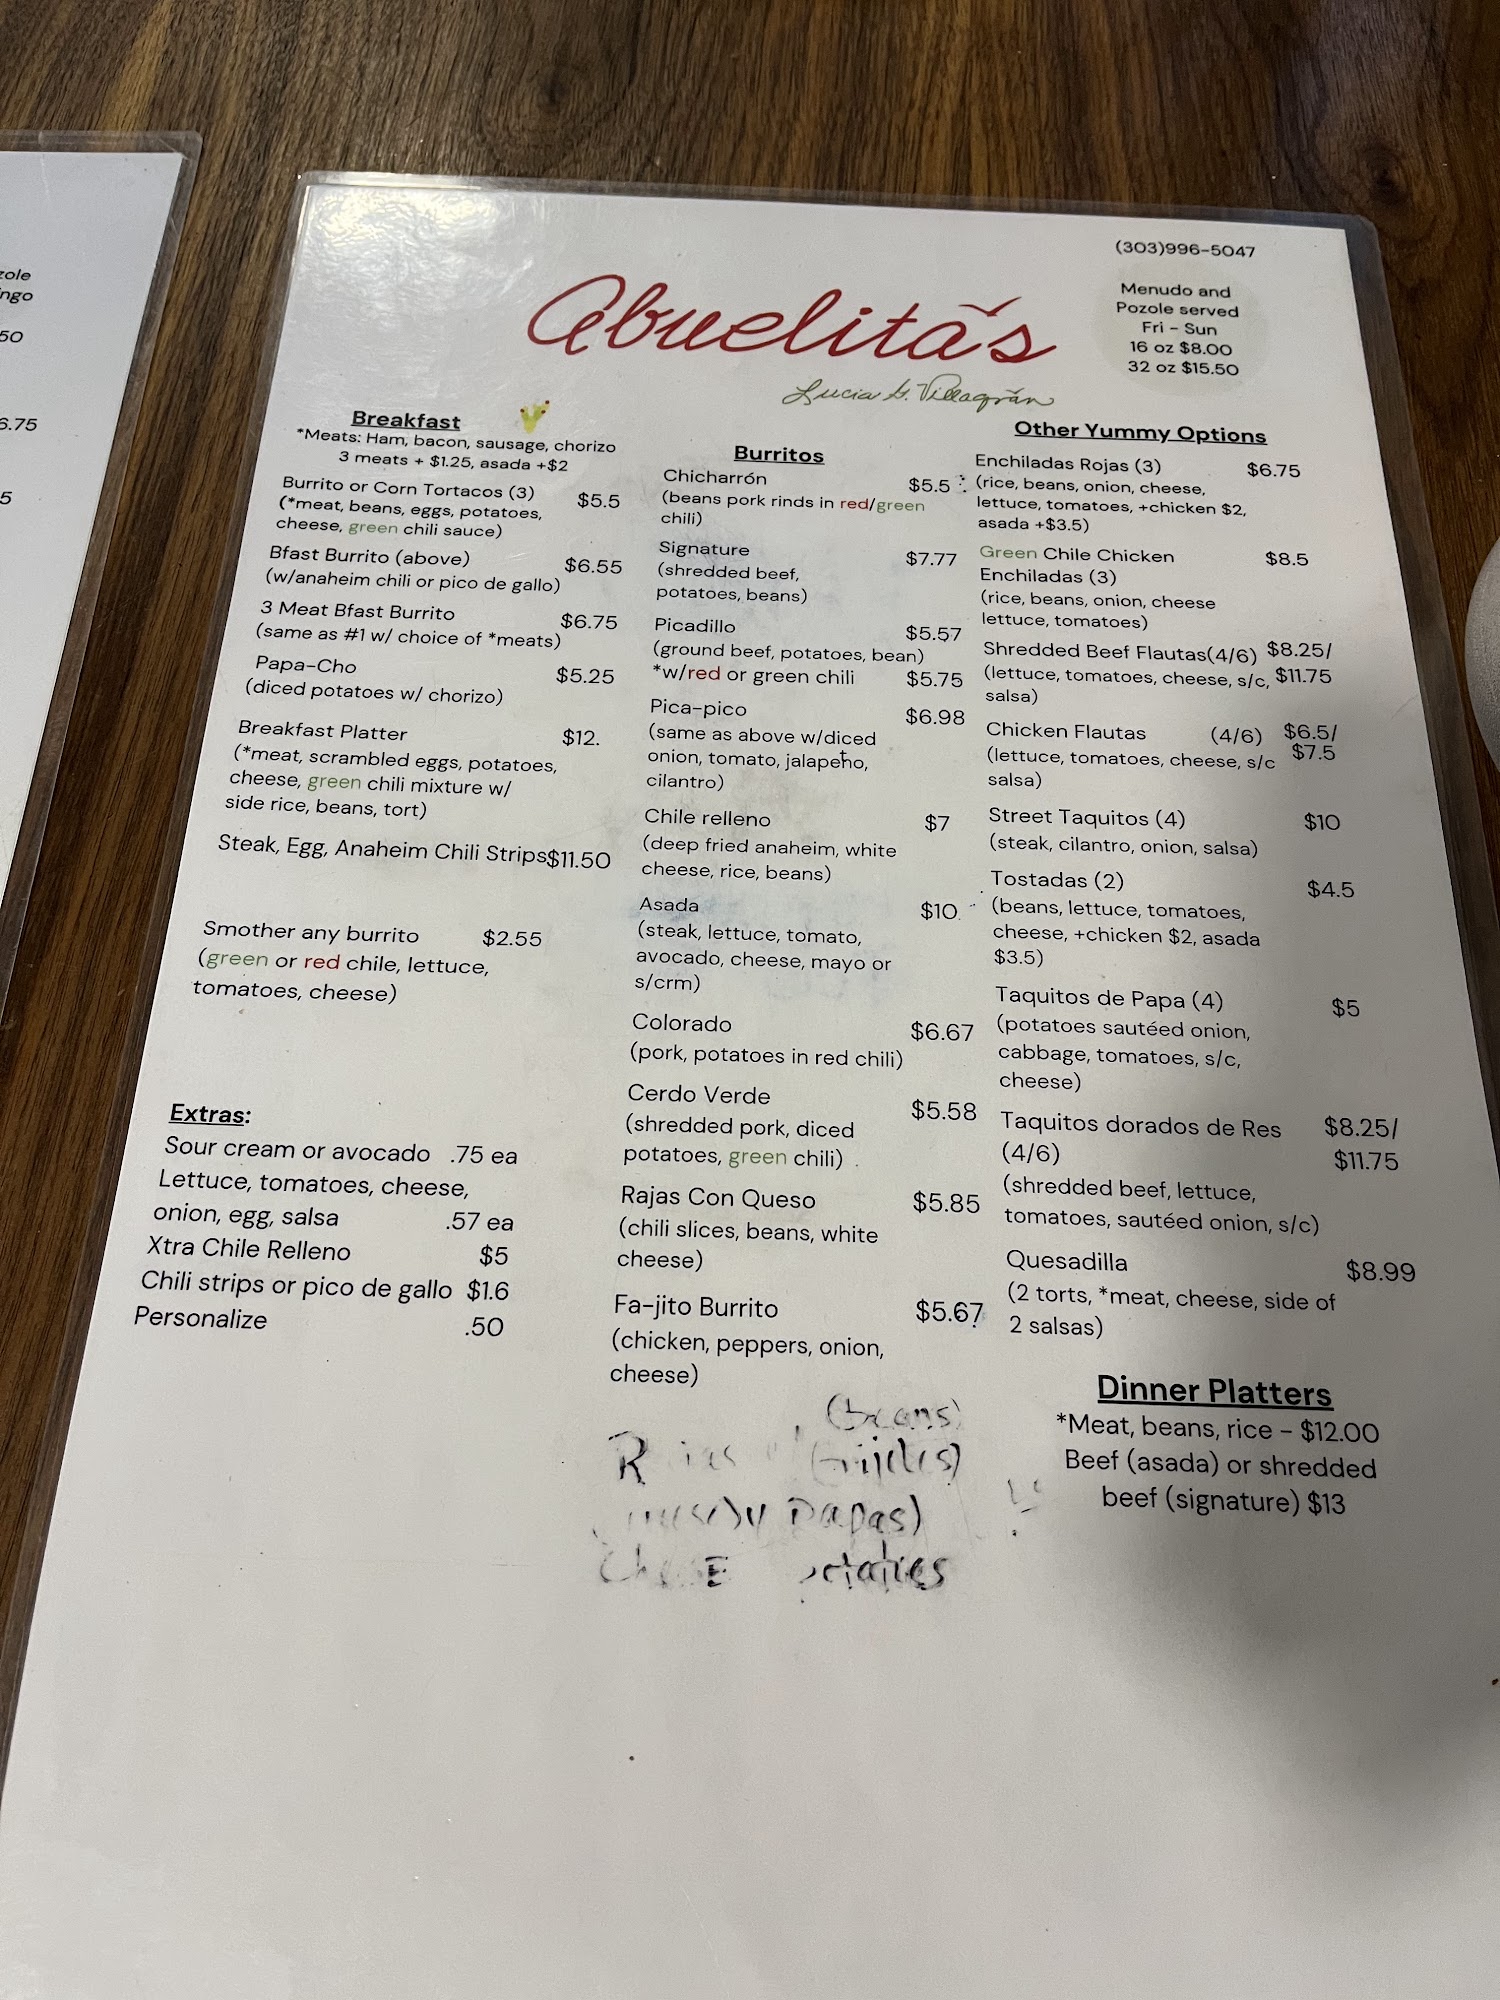 zole
ngo
50
6.75
5
(303)996-5047
Menudo and
Pozole served
Fri - Sun
16 oz $8.00
32 oz $15.50
Abuelita's
Lucia G. Villagrán
Breakfast
*Meats: Ham, bacon, sausage, chorizo
3 meats + $1.25, asada +$2
Burrito or Corn Tortacos (3) $5.5
(*meat, beans, eggs, potatoes,
cheese, green chili sauce)
Bfast Burrito (above) $6.55
(w/anaheim chili or pico de gallo)
3 Meat Bfast Burrito $6.75
(same as #1 w/ choice of *meats)
Papa-Cho $5.25
(diced potatoes w/ chorizo)
Breakfast Platter $12.
(*meat, scrambled eggs, potatoes,
cheese, green chili mixture w/
side rice, beans, tort)
Steak, Egg, Anaheim Chili Strips$11.50
Smother any burrito $2.55
(green or red chile, lettuce,
tomatoes, cheese)
Extras:
Sour cream or avocado .75 ea
Lettuce, tomatoes, cheese,
onion, egg, salsa .57 ea
Xtra Chile Relleno $5
Chili strips or pico de gallo $1.6
Personalize .50
Burritos
Chicharrón $5.5
(beans pork rinds in red/green
chili)
Signature $7.77
(shredded beef,
potatoes, beans)
Picadillo $5.57
(ground beef, potatoes, bean)
*w/red or green chili $5.75
Pica-pico $6.98
(same as above w/diced
onion, tomato, jalapeño,
cilantro)
Chile relleno $7
(deep fried anaheim, white
cheese, rice, beans)
Asada $10.
(steak, lettuce, tomato,
avocado, cheese, mayo or
s/crm)
Colorado $6.67
(pork, potatoes in red chili)
Cerdo Verde $5.58
(shredded pork, diced
potatoes, green chili)
Rajas Con Queso $5.85
(chili slices, beans, white
cheese)
Fa-jito Burrito $5.67
(chicken, peppers, onion,
cheese)
(beans)
Papas)
Other Yummy Options
Enchiladas Rojas (3) $6.75
(rice, beans, onion, cheese,
lettuce, tomatoes, +chicken $2,
asada +$3.5)
Green Chile Chicken $8.5
Enchiladas (3)
(rice, beans, onion, cheese
lettuce, tomatoes)
Shredded Beef Flautas(4/6) $8.25/
(lettuce, tomatoes, cheese, s/c, $11.75
salsa)
Chicken Flautas (4/6) $6.5/
(lettuce, tomatoes, cheese, s/c $7.5
salsa)
Street Taquitos (4) $10
(steak, cilantro, onion, salsa)
Tostadas (2) $4.5
(beans, lettuce, tomatoes,
cheese, +chicken $2, asada
$3.5)
Taquitos de Papa (4) $5
(potatoes sautéed onion,
cabbage, tomatoes, s/c,
cheese)
Taquitos dorados de Res $8.25/
(4/6) $11.75
(shredded beef, lettuce,
tomatoes, sautéed onion, s/c)
Quesadilla $8.99
(2 torts, *meat, cheese, side of
2 salsas)
Dinner Platters
*Meat, beans, rice - $12.00
Beef (asada) or shredded
beef (signature) $13